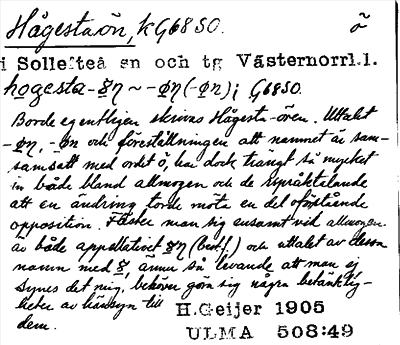 Hågestaön, kG6850. ö
i Sollefteå sn och tg Västernorrl.l.
hogesta-ꝋn ~ -øn (-øn); G6850.
Borde egentligen skrivas Hågesta-ören. Uttalet
-øn, -øn och föreställningen att namnet är sam-
samsatt med ordet ö, har dock trängt så mycket
in både bland allmogen och de språktalande
att en ändring torde möta en del oförstående
opposition. Fäster man sig ensamt vid allmogen
är både appellativet (best.), och uttalet av dessa
namn med ännu så levande att man ej,
synes det mig, behöver göra sig några betänklig-
heter av hänsyn till
dem.
H.Geijer 1905
ULMA 508:49